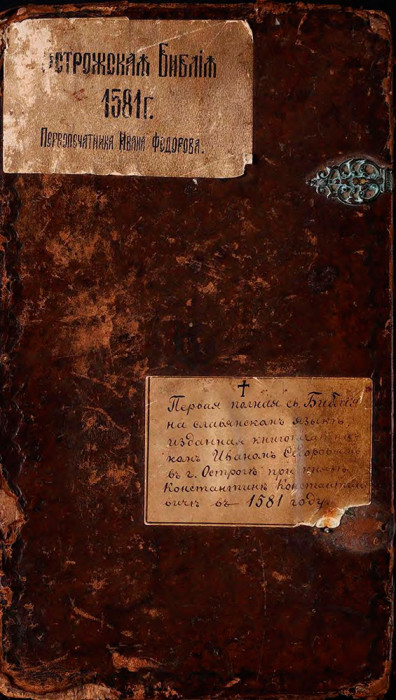 Острожская Библія
1581 г.
Первопечатника Ивана Федорова.
Первая полная св. Библія
на славянскомъ языкѣ,
изданная
комъ Иваномъ Ѳедоровымъ
въ г. Острогѣ при князѣ
Константинѣ Константино
вичѣ въ 1581 году.